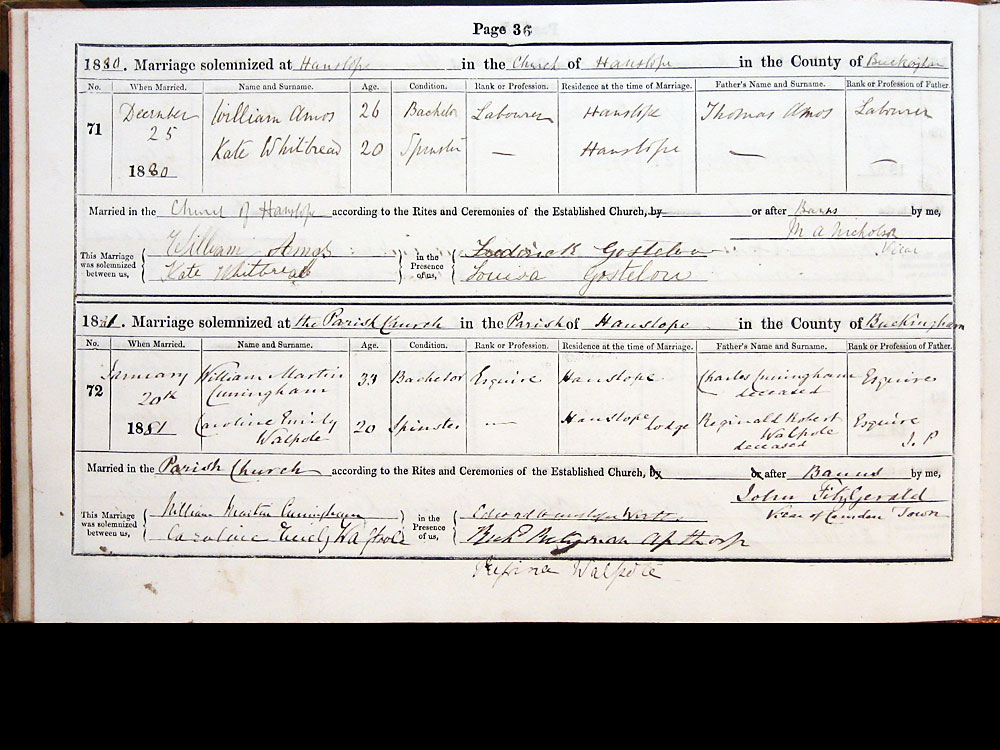 Page 36
1880. Marriage solemnized at Hanslope in the Church of Hanslope in the County of Buckingham
No. When Married. Name and Surname. Age. Condition. Rank or Profession. Residence at the time of Marriage. Father's Name and Surname. Rank or Profession of Father.
71 December 25 1880 William Amos 26 Bachelor Labourer Hanslope Thomas Amos Labourer
Kate Whitbread 20 Spinster — Hanslope — —
Married in the Church of Hanslope according to the Rites and Ceremonies of the Established Church, by or after Banns by me,
M A Nicholson
Vicar
This Marriage was solemnized between us, William Amos in the Presence of us, Frederick Gostelow
Kate Whitbread Louisa Gostelow
1881. Marriage solemnized at the Parish Church in the Parish of Hanslope in the County of Buckingham
No. When Married. Name and Surname. Age. Condition. Rank or Profession. Residence at the time of Marriage. Father's Name and Surname. Rank or Profession of Father.
72 January 20th 1881 William Martin Cuninghame 33 Bachelor Esquire Hanslope Charles Cuninghame deceased Esquire
Caroline Emily Walpole 20 Spinster — Hanslope Lodge Reginald Robert Walpole deceased Esquire J.P
Married in the Parish Church according to the Rites and Ceremonies of the Established Church, by or after Banns by me,
John FitzGerald
Vicar of Camden Town
This Marriage was solemnized between us, William Martin Cuninghame in the Presence of us, Edward Hanslope
Caroline Emily Walpole Apthorp
Walpole